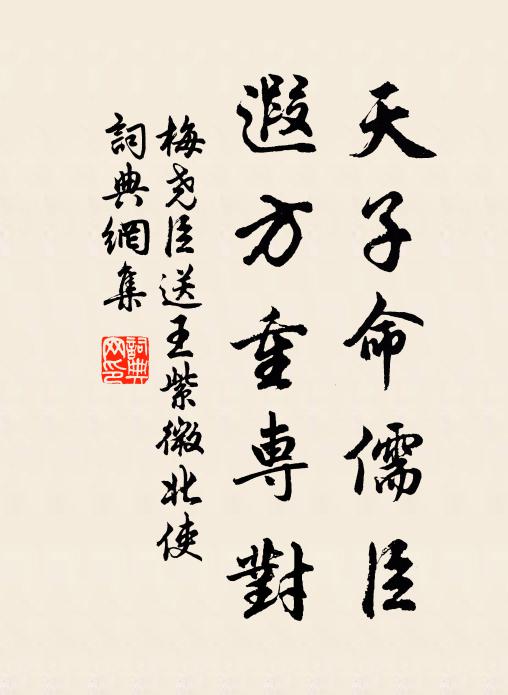 天子命儒臣
遐方重専對
梅尧臣送王紫微北使
詞典網集
詞典网印